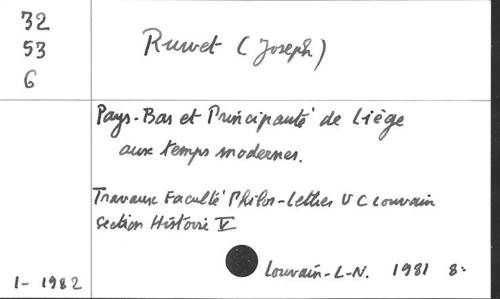 32
53
6
Ruwet (Joseph)
Pays-Bas et Principauté de Liège
aux temps modernes.
Travaux Faculté Philos-Lettres U C Louvain
Section Histoire V
Louvain-L-N. 1981 8º
1-1982